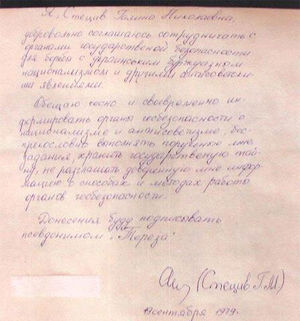 Я, Стецив Галина Николаевна,
добровольно соглашаюсь сотрудничать с
органами государственой безопасности
для борьбы с украинским буржуазным
национализмом и другими антисоветски-
ми явлениями.
Обещаю чесно и своевременно ин-
формировать органы госбезопасности о
национализме и антисоветизме, бес-
прекословно выполнять порученые мне
задания, хранить государственую тай-
ну, не разглашать доведенную мне инфор-
мацию о способах и методах работы
органов госбезопасности.
Донесения буду подписывать
псевдонимом "Тереза"
(Стецив Г.Н)
сентября 1979г.